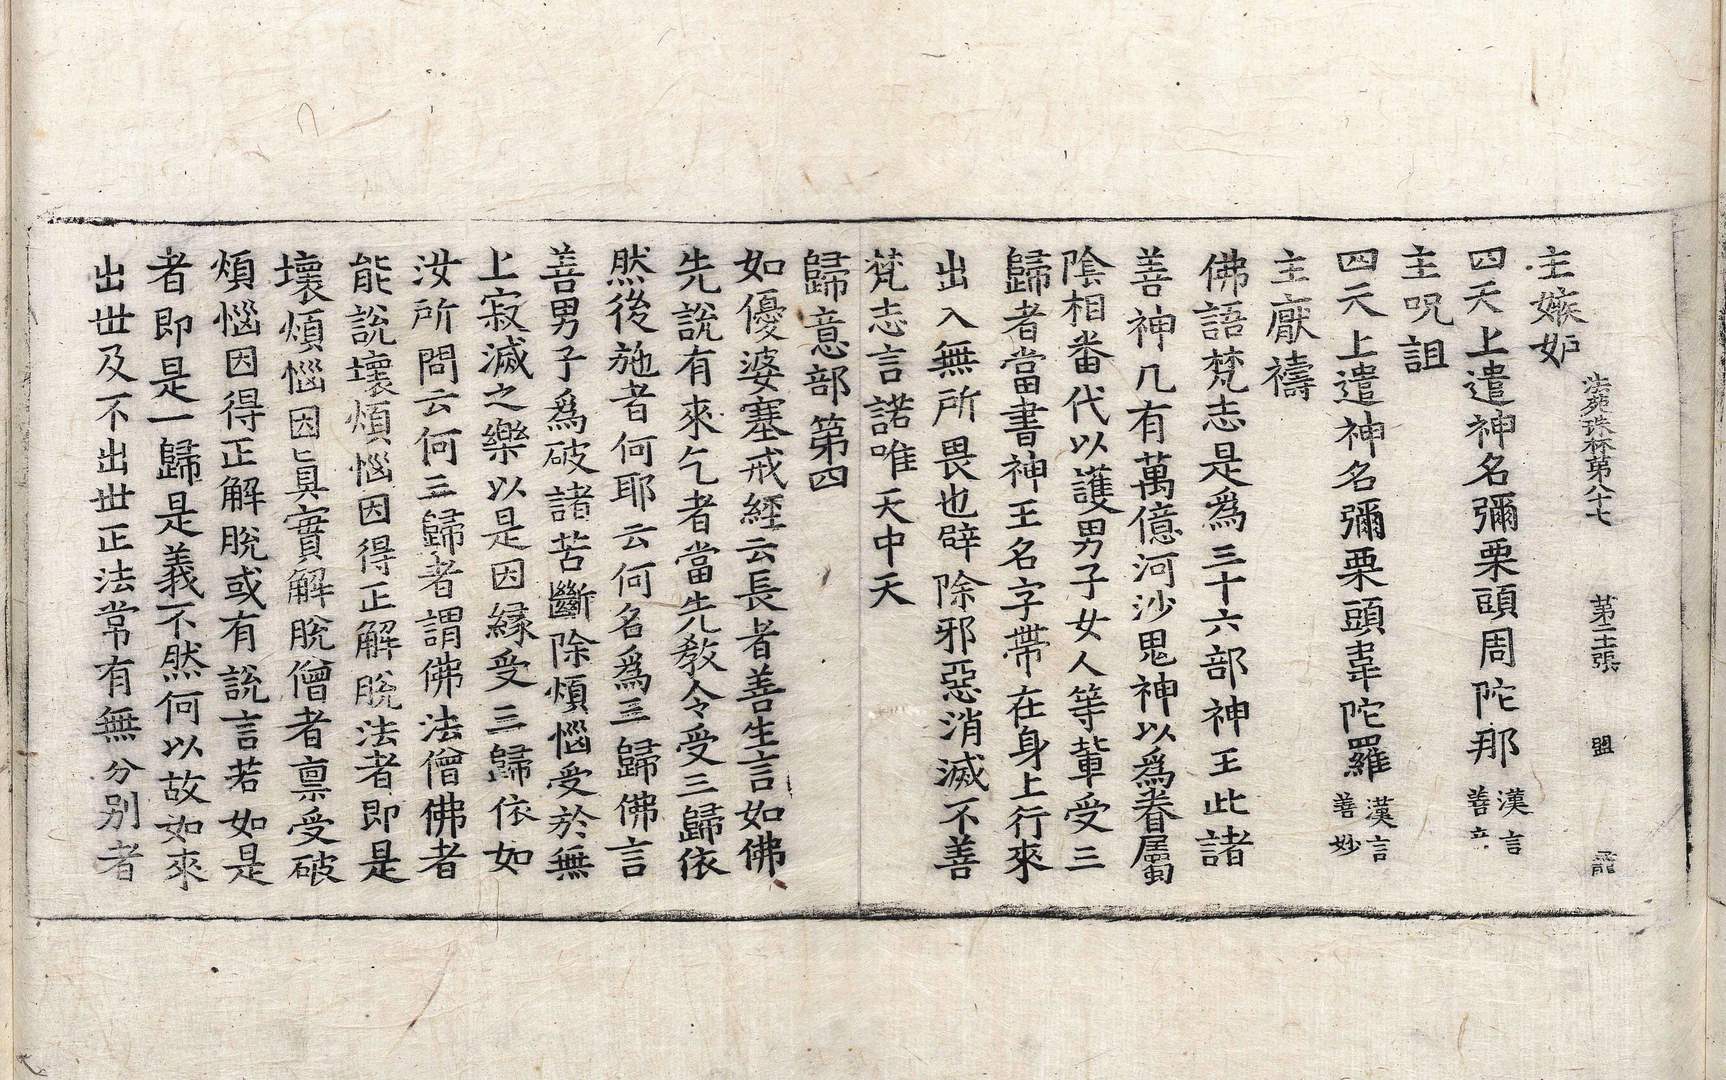 法苑珠林第八十七 第二十張 盟
主嫉妒
四天上遣神名彌栗頭周陀那 漢言善
主呪詛
四天上遣神名彌栗頭韋陀羅 漢言善妙
主厭禱
佛語梵志是爲三十六部神王此諸
善神凡有萬億河沙鬼神以爲眷屬
陰相番代以護男子女人等輩受三
歸者當書神王名字帶在身上行來
出入無所畏也辟除邪惡消滅不善
梵志言諾唯天中天
歸意部第四
如優婆塞戒經云長者善生言如佛
先說有來乞者當先敎令受三歸依
然後施者何耶云何名爲三歸佛言
善男子爲破諸苦斷除煩惱受於無
上寂滅之樂以是因縁受三歸依如
汝所問云何三歸者謂佛法僧佛者
能說壞煩惱因得正解脫法者即是
壞煩惱因眞實解脫僧者禀受破
煩惱因得正解脫或有說言若如是
者即是一歸是義不然何以故如來
出世及不出世正法常有無分别者